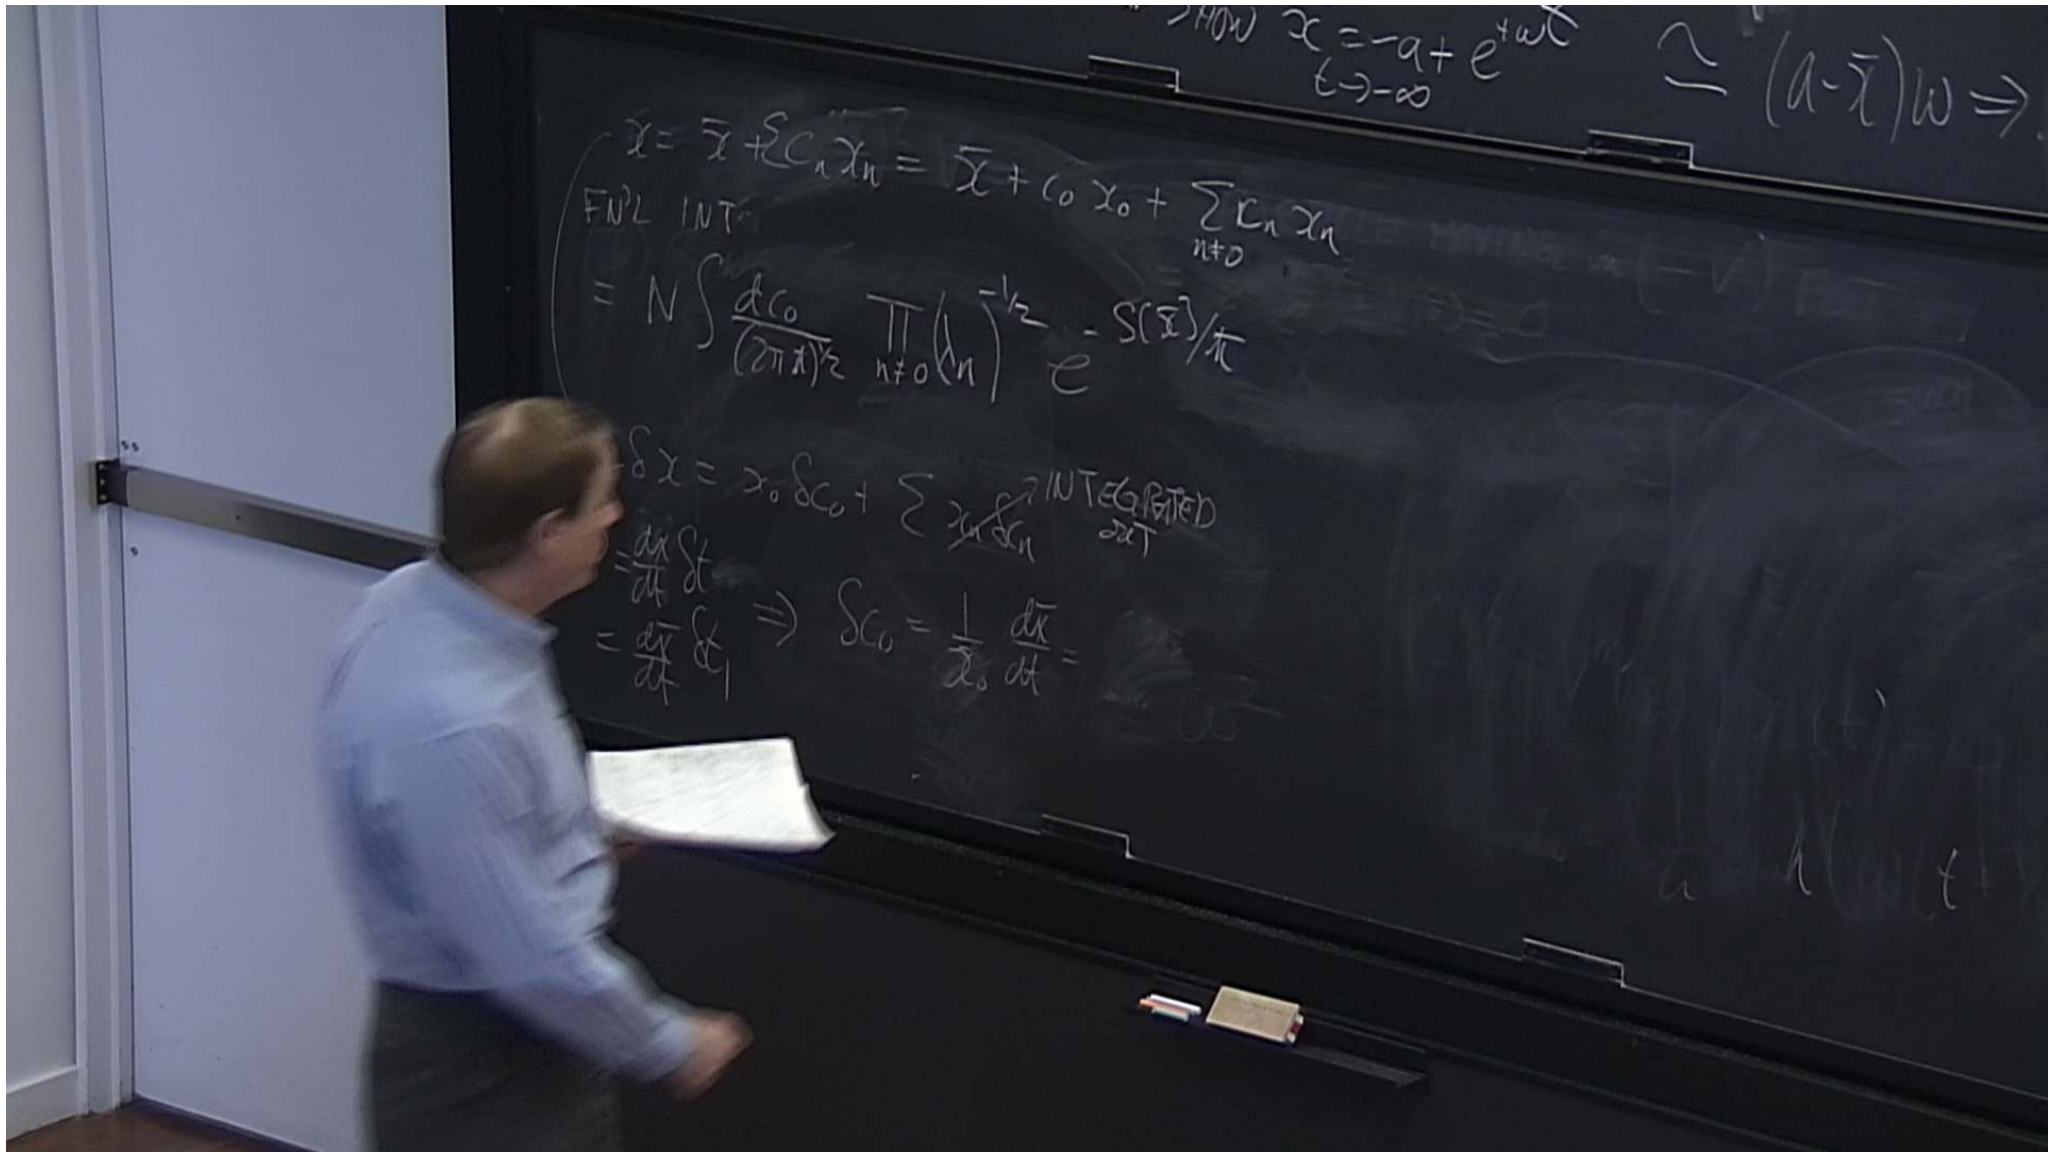 SHOW x = -a + e^{+ωt} ≃ (a-x̄)ω ⇒
t→-∞
x = x̄ + Σ c_n x_n = x̄ + c_0 x_0 + Σ_{n≠0} c_n x_n
FN'L INT
= N ∫ dc_0/(2πħ)^{1/2} ∏_{n≠0} (λ_n)^{-1/2} e^{-S[x̄]/ħ}
δx = x_0 δc_0 + Σ x_n δc_n → INTEGRATED OUT
= dx/dt δt
= dx̄/dt δt_1 ⇒ δc_0 = 1/x_0 dx̄/dt =